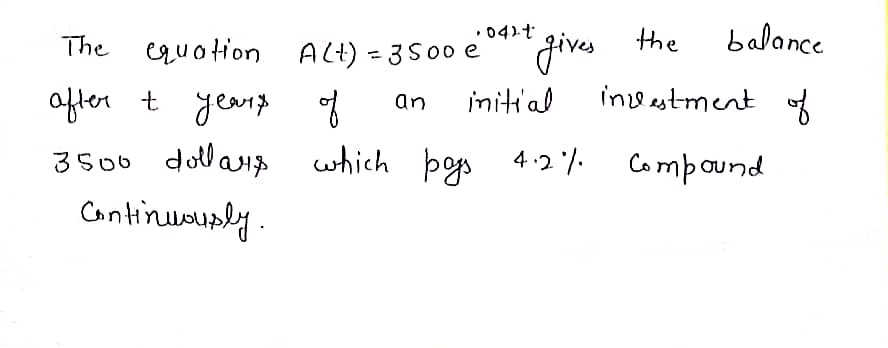 The equation A(t) = 3500 e^.042t gives the balance
after t years of an initial investment of
3500 dollars which pays 4.2% Compound
Continuously.